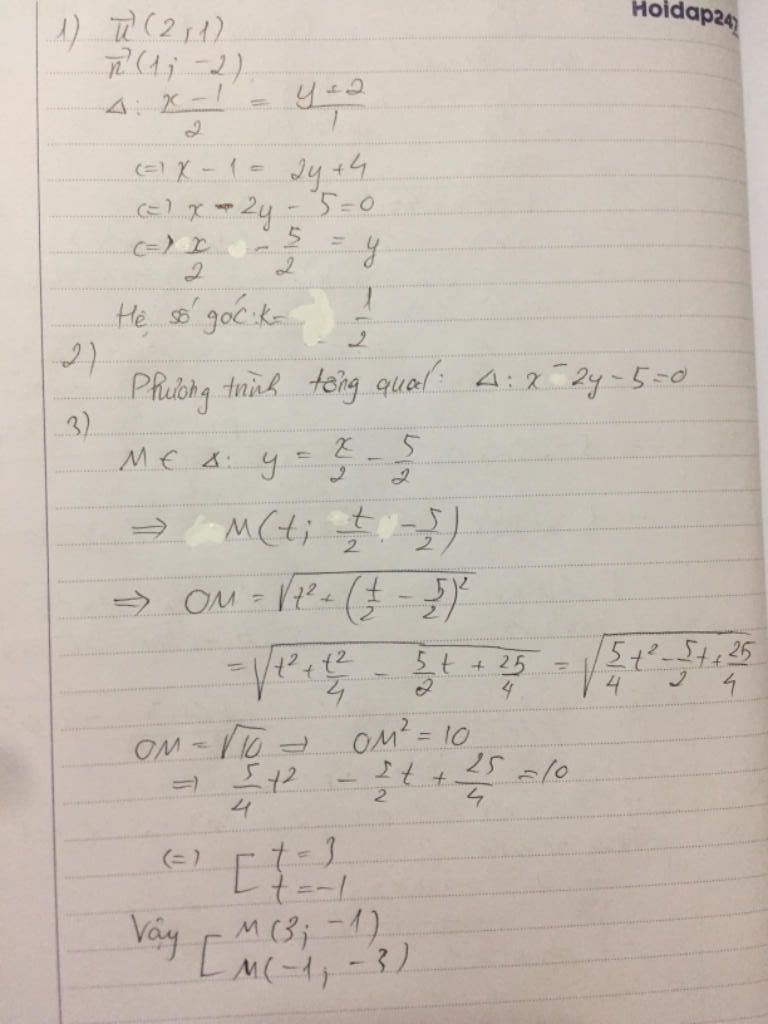 Hoidap247
1) u⃗ (2; 1)
n⃗ (1; -2)
Δ: (x - 1)/2 = (y + 2)/1
<=> x - 1 = 2y + 4
<=> x - 2y - 5 = 0
<=> x/2 - 5/2 = y
Hệ số góc: k = 1/2
2)
Phương trình tổng quát: Δ: x - 2y - 5 = 0
3)
M ∈ Δ: y = x/2 - 5/2
=> M(t; t/2 - 5/2)
=> OM = √(t² + (t/2 - 5/2)²)
= √(t² + t²/4 - 5/2 t + 25/4) = √(5/4 t² - 5/2 t + 25/4)
OM = √10 => OM² = 10
=> 5/4 t² - 5/2 t + 25/4 = 10
<=> [ t = 3
t = -1
Vậy [ M(3; -1)
M(-1; -3)